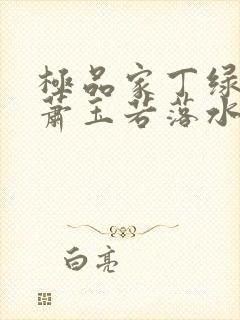 極品家丁绿
萧玉若落水
白亮